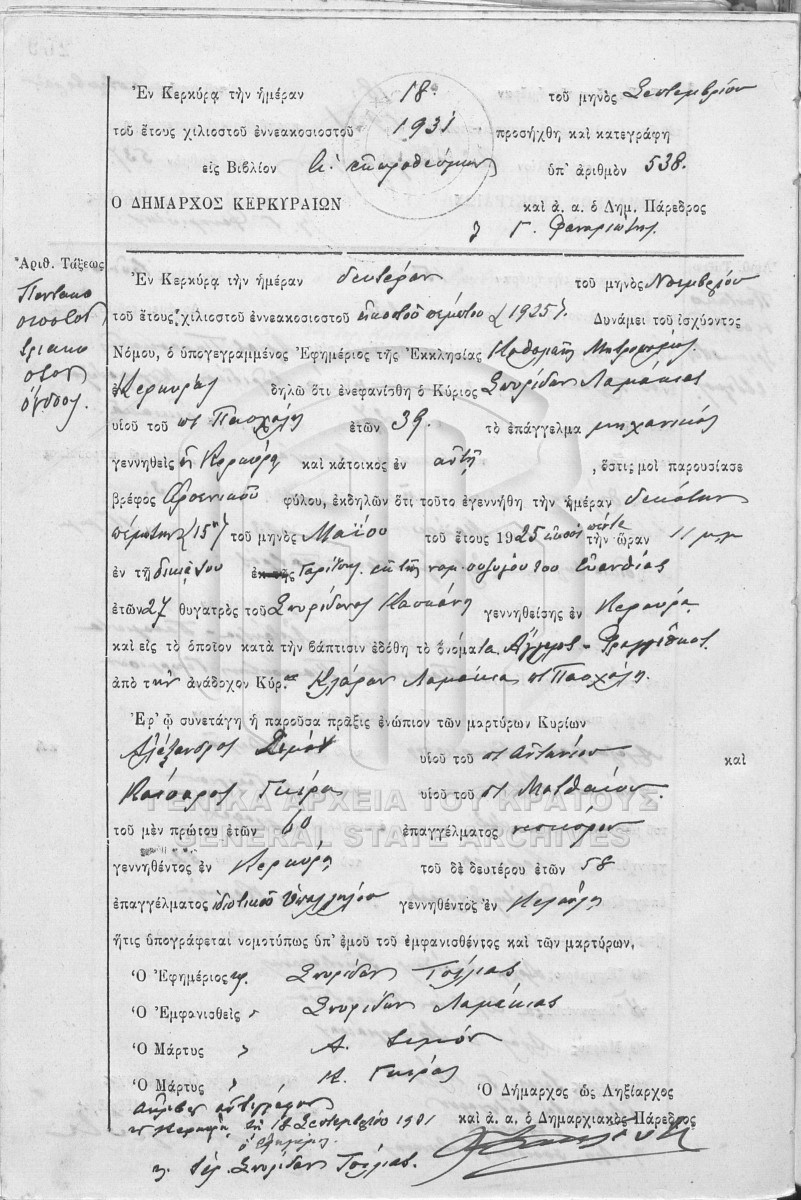 Ἐν Κερκύρᾳ τὴν ἡμέραν 18. τοῦ μηνὸς Σεπτεμβρίου
τοῦ ἔτους χιλιοστοῦ ἐννεακοσιοστοῦ 1931 προσήχθη καὶ κατεγράφη
εἰς Βιβλίον ἐκπροθέσμων ὑπ' ἀριθμὸν 538.
Ο ΔΗΜΑΡΧΟΣ ΚΕΡΚΥΡΑΙΩΝ καὶ ἀ. α. ὁ Δημ. Πάρεδρος
Γ. Φαναριώτης
Ἀριθ. Τάξεως
Πεντακο
σιοστὸς
τριακο
στὸς
ὄγδοος.
Ἐν Κερκύρᾳ τὴν ἡμέραν δευτέραν τοῦ μηνὸς Νοεμβρίου
τοῦ ἔτους χιλιοστοῦ ἐννεακοσιοστοῦ εἰκοστοῦ πέμπτου (1925) Δυνάμει τοῦ ἰσχύοντος
Νόμου, ὁ ὑπογεγραμμένος Ἐφημέριος τῆς Ἐκκλησίας Καθολικῆς Μητροπόλεως
Κερκύρας δηλῶ ὅτι ἐνεφανίσθη ὁ Κύριος Σπυρίδων Λαμάκιας
υἱοῦ τοῦ ποτ Πασχάλη ἐτῶν 39. τὸ ἐπάγγελμα μηχανικὸς
γεννηθεὶς ἐν Κερκύρᾳ καὶ κάτοικος ἐν αὐτῇ, ὅστις μοὶ παρουσίασε
βρέφος ἀρσενικοῦ φύλου, ἐκδηλῶν ὅτι τοῦτο ἐγεννήθη τὴν ἡμέραν δεκάτην
πέμπτην (15ην) τοῦ μηνὸς Μαΐου τοῦ ἔτους 1925 εἴκοσι πέντε τὴν ὥραν 11 μ.μ
ἐν τῇ οἰκίᾳ του Γαρίτσης ἐκ τῆς νομ. συζύγου του Εὐανθίας
ἐτῶν 27 θυγατρὸς τοῦ Σπυρίδωνος γεννηθείσης ἐν Κερκύρᾳ
καὶ εἰς τὸ ὁποῖον κατὰ τὴν βάπτισιν ἐδόθη τὸ ὀνόματα Ἄγγελος - Φραγκῖσκος
ἀπὸ τὴν ἀνάδοχον Κύρ. Κλάραν Λαμάκια ποτ Πασχάλη.
Ἐφ' ᾧ συνετάγη ἡ παροῦσα πρᾶξις ἐνώπιον τῶν μαρτύρων Κυρίων
Ἀλέξανδρος υἱοῦ τοῦ ποτ Ἀντωνίου καὶ
Καίσαρος Γκίρα υἱοῦ τοῦ ποτ Ματθαίου
τοῦ μὲν πρώτου ἐτῶν 60 ἐπαγγέλματος νεωκόρου
γεννηθέντος ἐν Κερκύρᾳ τοῦ δὲ δευτέρου ἐτῶν 58
ἐπαγγέλματος ἰδιωτικοῦ ὑπαλλήλου γεννηθέντος ἐν Κερκύρᾳ
ἥτις ὑπογράφεται νομοτύπως ὑπ' ἐμοῦ τοῦ ἐμφανισθέντος καὶ τῶν μαρτύρων,
Ὁ Ἐφημέριος Σπυρίδων
Ὁ Ἐμφανισθεὶς Σπυρίδων Λαμάκιας
Ὁ Μάρτυς Α.
Ὁ Μάρτυς Κ. Γκίρας
Ὁ Δήμαρχος ὡς Ληξίαρχος
καὶ ἀ. α. ὁ Δημαρχιακὸς Πάρεδρος
Ἀκριβὲς ἀντίγραφον
ἐν Κερκύρᾳ τῇ 18 Σεπτεμβρίου 1931
ὁ ἐφημέριος
Σπυρίδων
ΓΕΝΙΚΑ ΑΡΧΕΙΑ ΤΟΥ ΚΡΑΤΟΥΣ
GENERAL STATE ARCHIVES